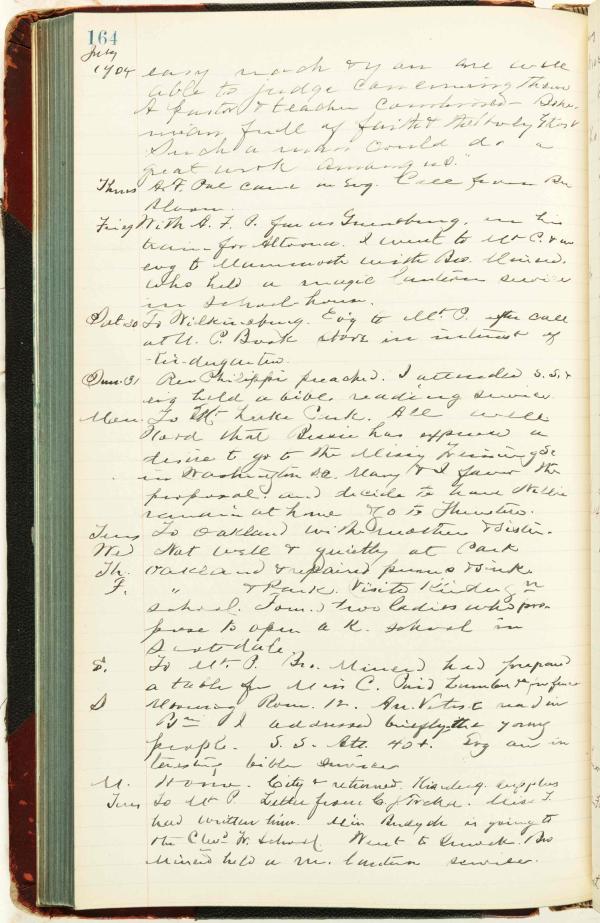 164
July
1904 easy reach & you are well
able to judge concerning them
A pastor & teacher combined – Bohe-
mian full of faith & the Holy Ghost
Such a man could do a
great work among us."
Thurs A. F. P. came in Evg. Call from Br
Bloom.
Friday With A. F. P. far as Greensburg, on his
train for Altoona. I went to Mt P. & in
evg to Mammoth with Bro. Minerd.
who held a magic lantern service
in school-house.
Sat 30 To Wilkinsburg. Evg to Mt P. after call
at U. P. Book store in interest of
Kindergarten.
Sun. 31 Rev. Philippi preached. I attended S. S. &
evg held a bible reading service
Mon. To Mt Lake Park. All well
Word that Bessie has expressed a
desire to go to the Missy Training Sc
in Washington Mary & I favor the
proposal, and decide to have Nellie
remain at home
Tues To Oakland with mother & Sister.
Wed Not well & quietly at Park
Th. Oakland & repaired pump & sink
F. " & Park. Visite Kinderg
school. two ladies who pro-
pose to open a K. school in
Scottdale.
S. To Mt. P. Bro. Minerd had prepared
a table for Miss C. Paid Lumber
S Morning Rom. 12. read in
Bm I addressed briefly the young
people. S. S. Att. 40+. Evg an in
teresting bible service
M. Home. City & returned. Kinderg. supplies
Tues To Mt P. Letter from C. J. Miss T.
had written him. Min is going to
the Clevd Tr. School. Went to Bro
Minerd held a m. lantern service.